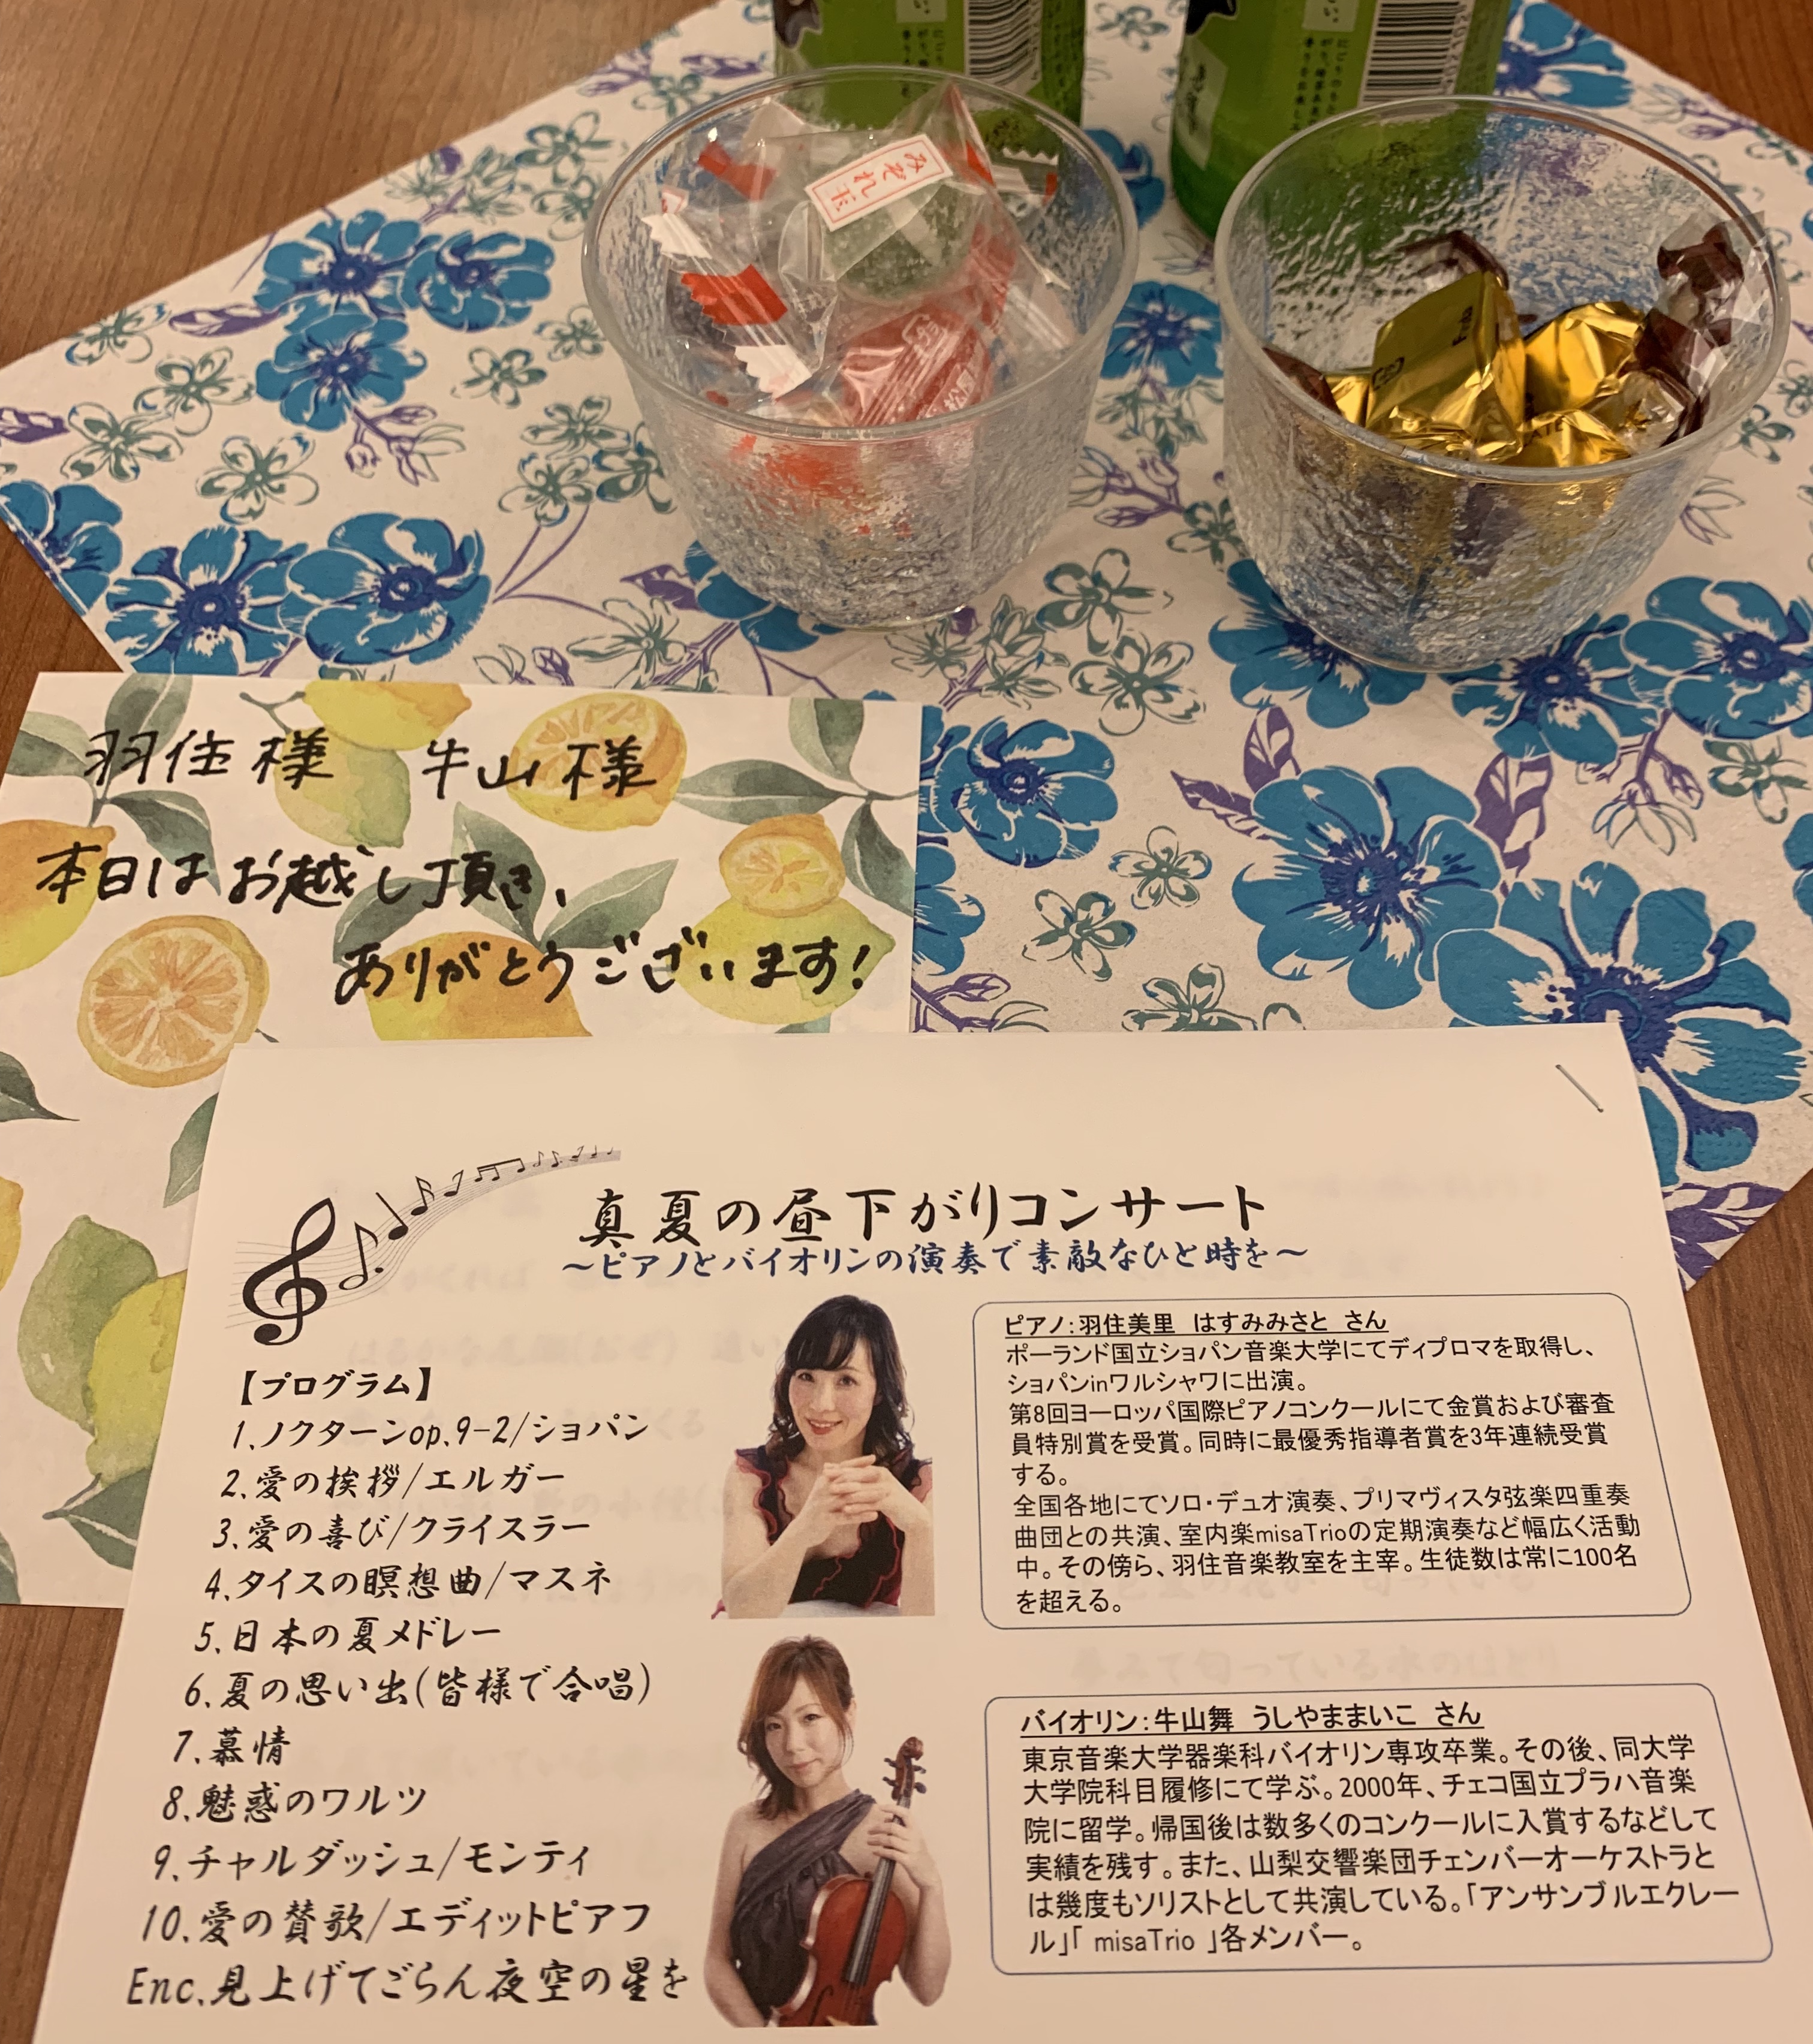 みぞれ玉
羽住様 牛山様
本日はお越し頂き、
ありがとうございます!
真夏の昼下がりコンサート
～ピアノとバイオリンの演奏で素敵なひと時を～
【プログラム】
1.ノクターンop.9-2/ショパン
2.愛の挨拶/エルガー
3.愛の喜び/クライスラー
4.タイスの瞑想曲/マスネ
5.日本の夏メドレー
6.夏の思い出(皆様で合唱)
7.慕情
8.魅惑のワルツ
9.チャルダッシュ/モンティ
10.愛の賛歌/エディットピアフ
Enc.見上げてごらん夜空の星を
ピアノ:羽住美里 はすみみさと さん
ポーランド国立ショパン音楽大学にてディプロマを取得し、
ショパンinワルシャワに出演。
第8回ヨーロッパ国際ピアノコンクールにて金賞および審査
員特別賞を受賞。同時に最優秀指導者賞を3年連続受賞
する。
全国各地にてソロ・デュオ演奏、プリマヴィスタ弦楽四重奏
曲団との共演、室内楽misaTrioの定期演奏など幅広く活動
中。その傍ら、羽住音楽教室を主宰。生徒数は常に100名
を超える。
バイオリン:牛山舞 うしやままいこ さん
東京音楽大学器楽科バイオリン専攻卒業。その後、同大学
大学院科目履修にて学ぶ。2000年、チェコ国立プラハ音楽
院に留学。帰国後は数多くのコンクールに入賞するなどして
実績を残す。また、山梨交響楽団チェンバーオーケストラと
は幾度もソリストとして共演している。「アンサンブルエクレー
ル」「 misaTrio 」各メンバー。